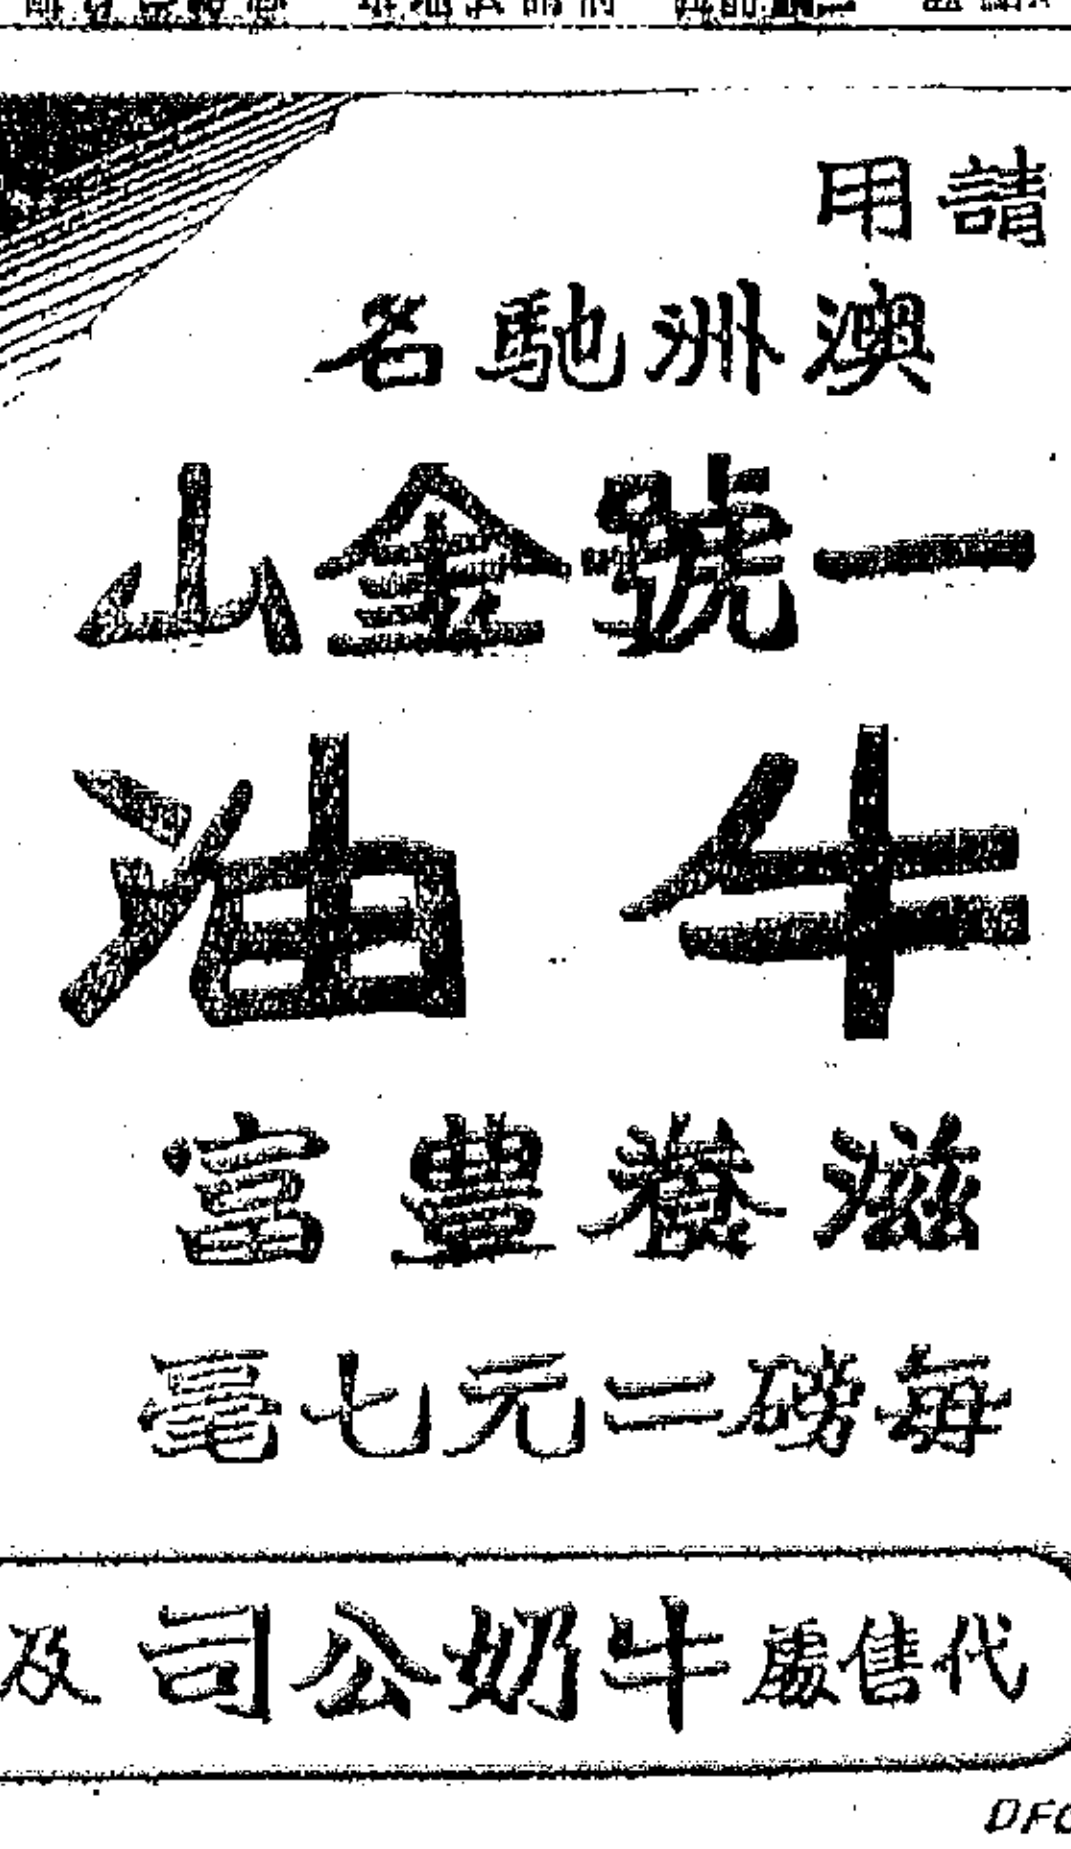 請用
澳洲馳名
一號金山
牛油
滋養豐富
每磅二元七毫
代售處牛奶公司及
DFC